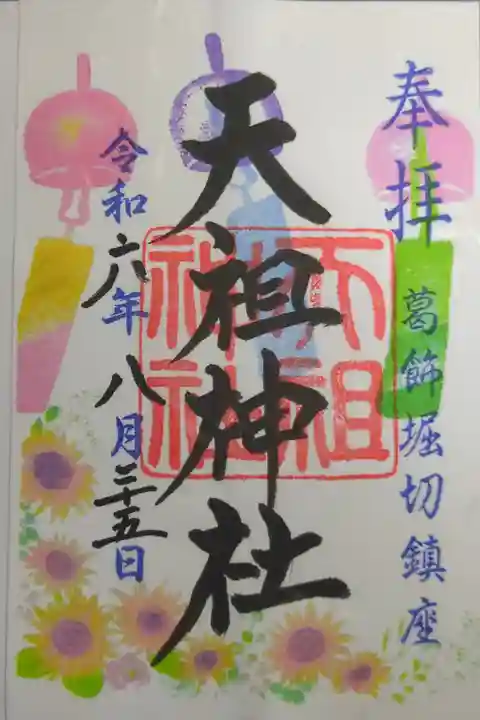 奉拝
葛飾堀切鎮座
天祖神社
天祖神社
令和六年八月二十五日